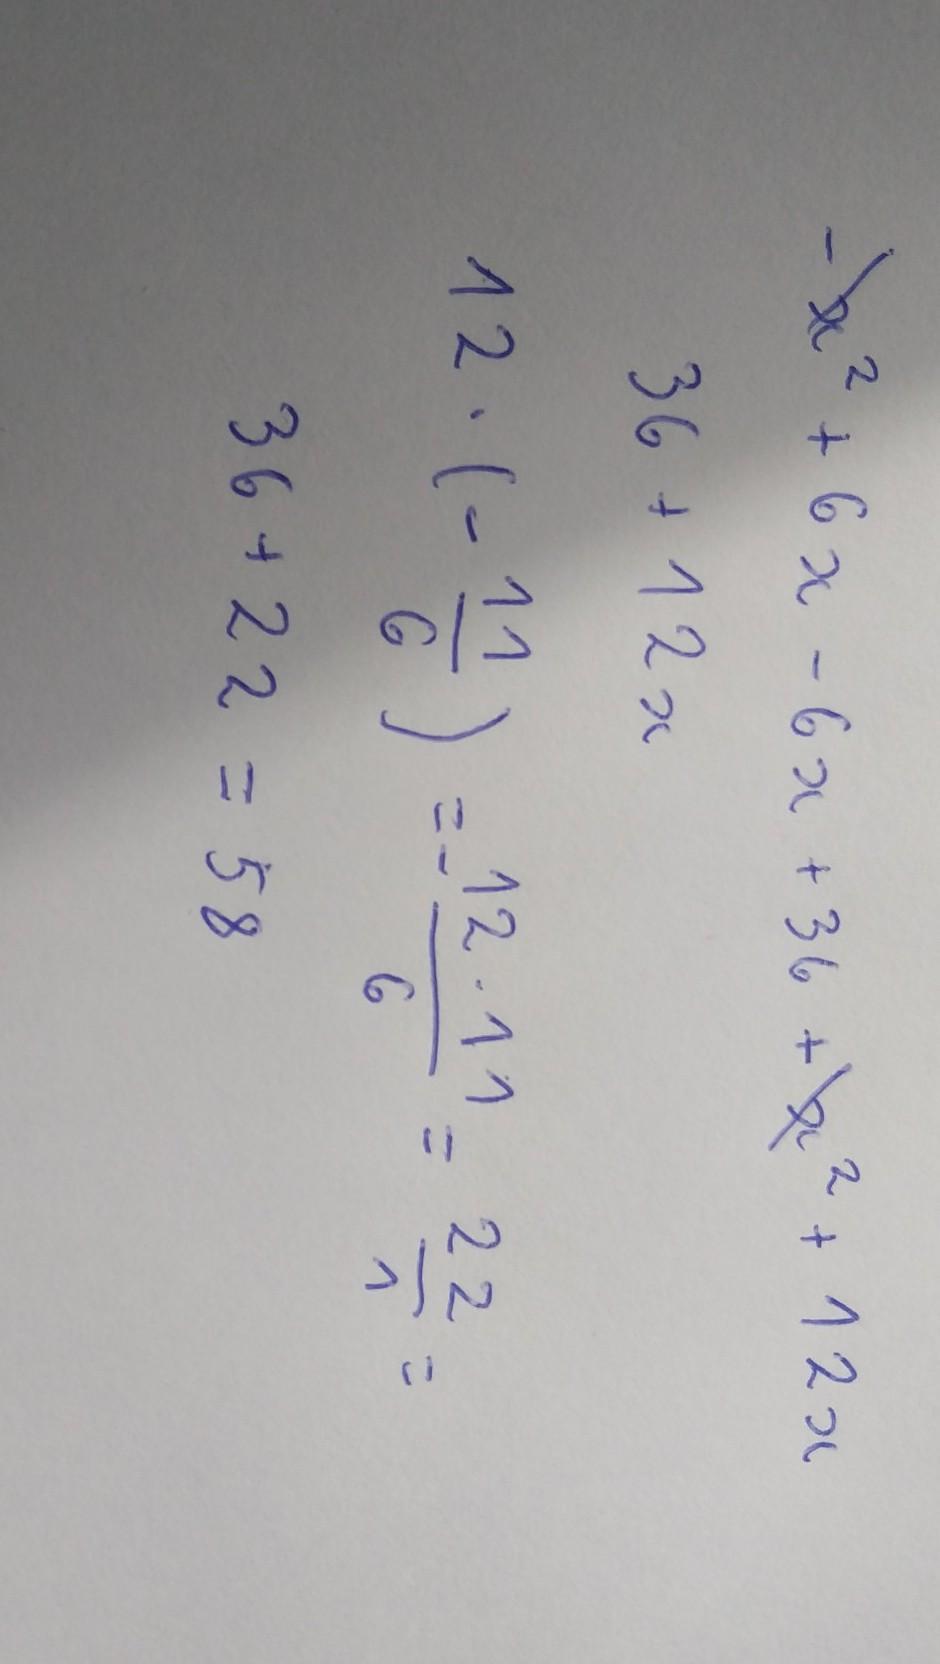 -x² + 6x - 6x + 36 + x² + 12x
36 + 12x
12 · (- 11/6) = - 12 · 11/6 = 22/1 =
36 + 22 = 58